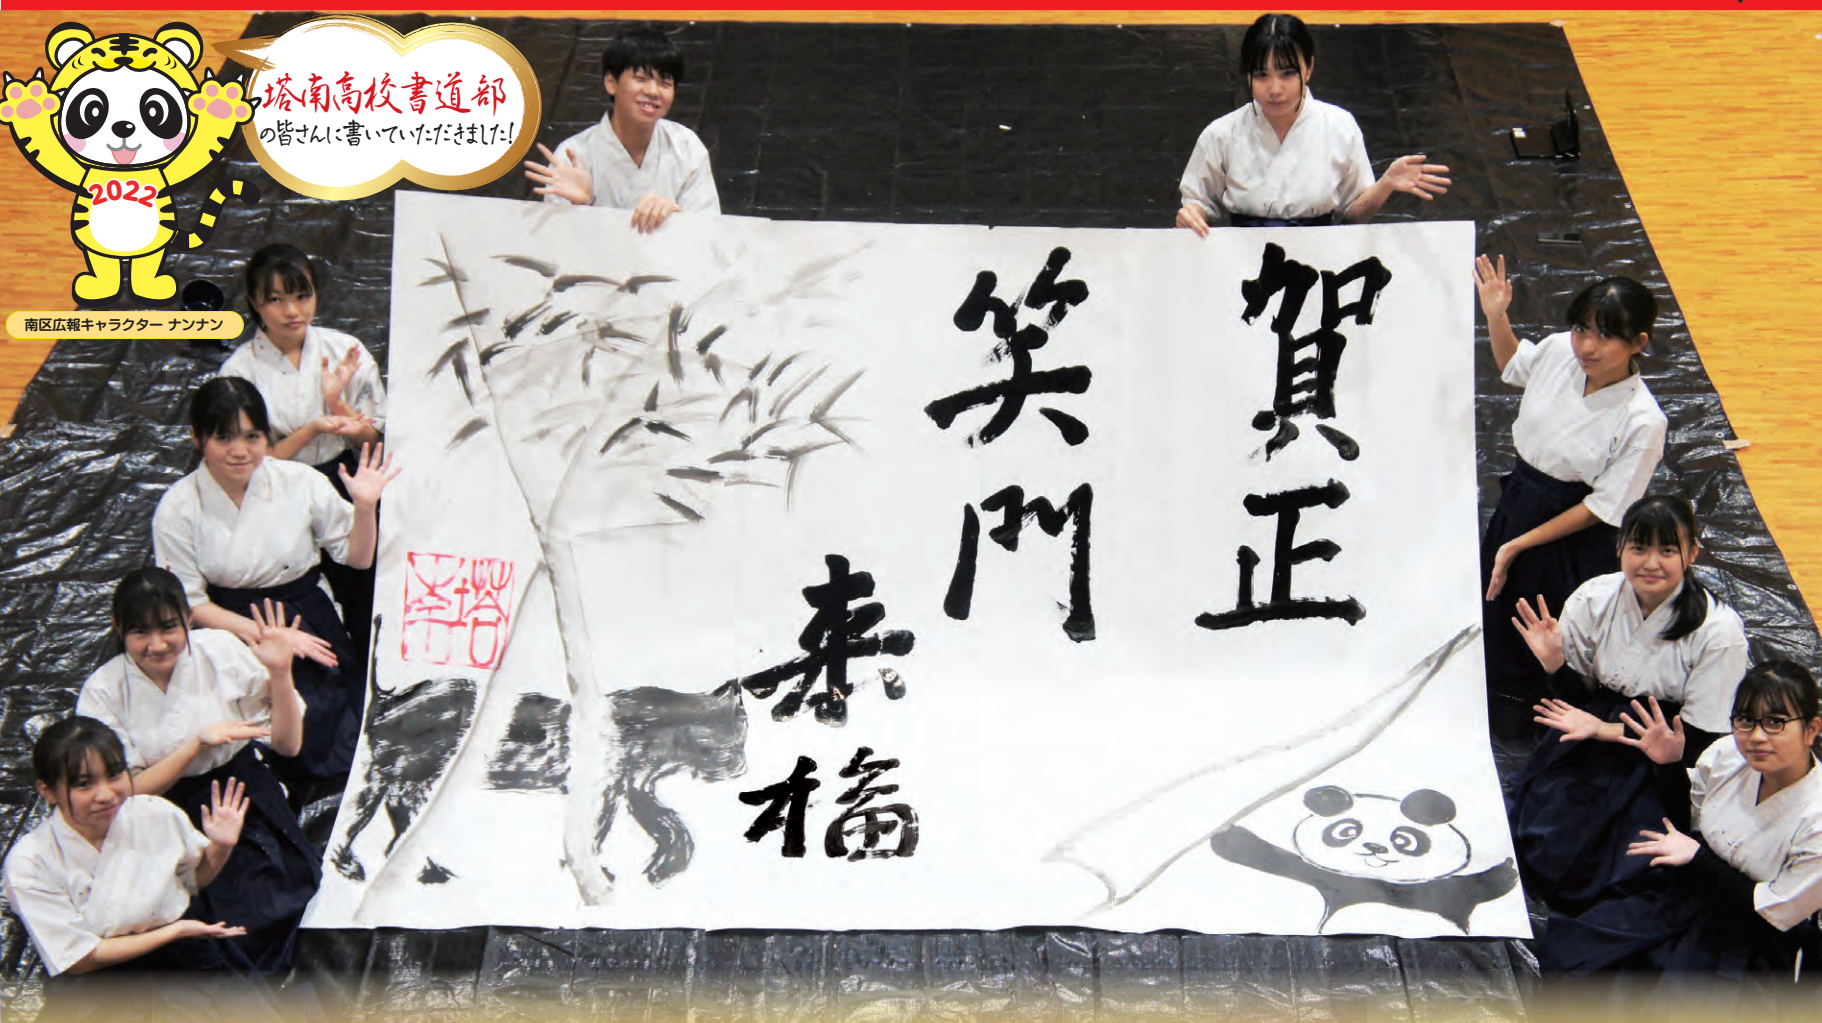 塔南高校書道部
の皆さんに書いていただきました!
2022
南区広報キャラクター ナンナン
賀正
笑門
来福